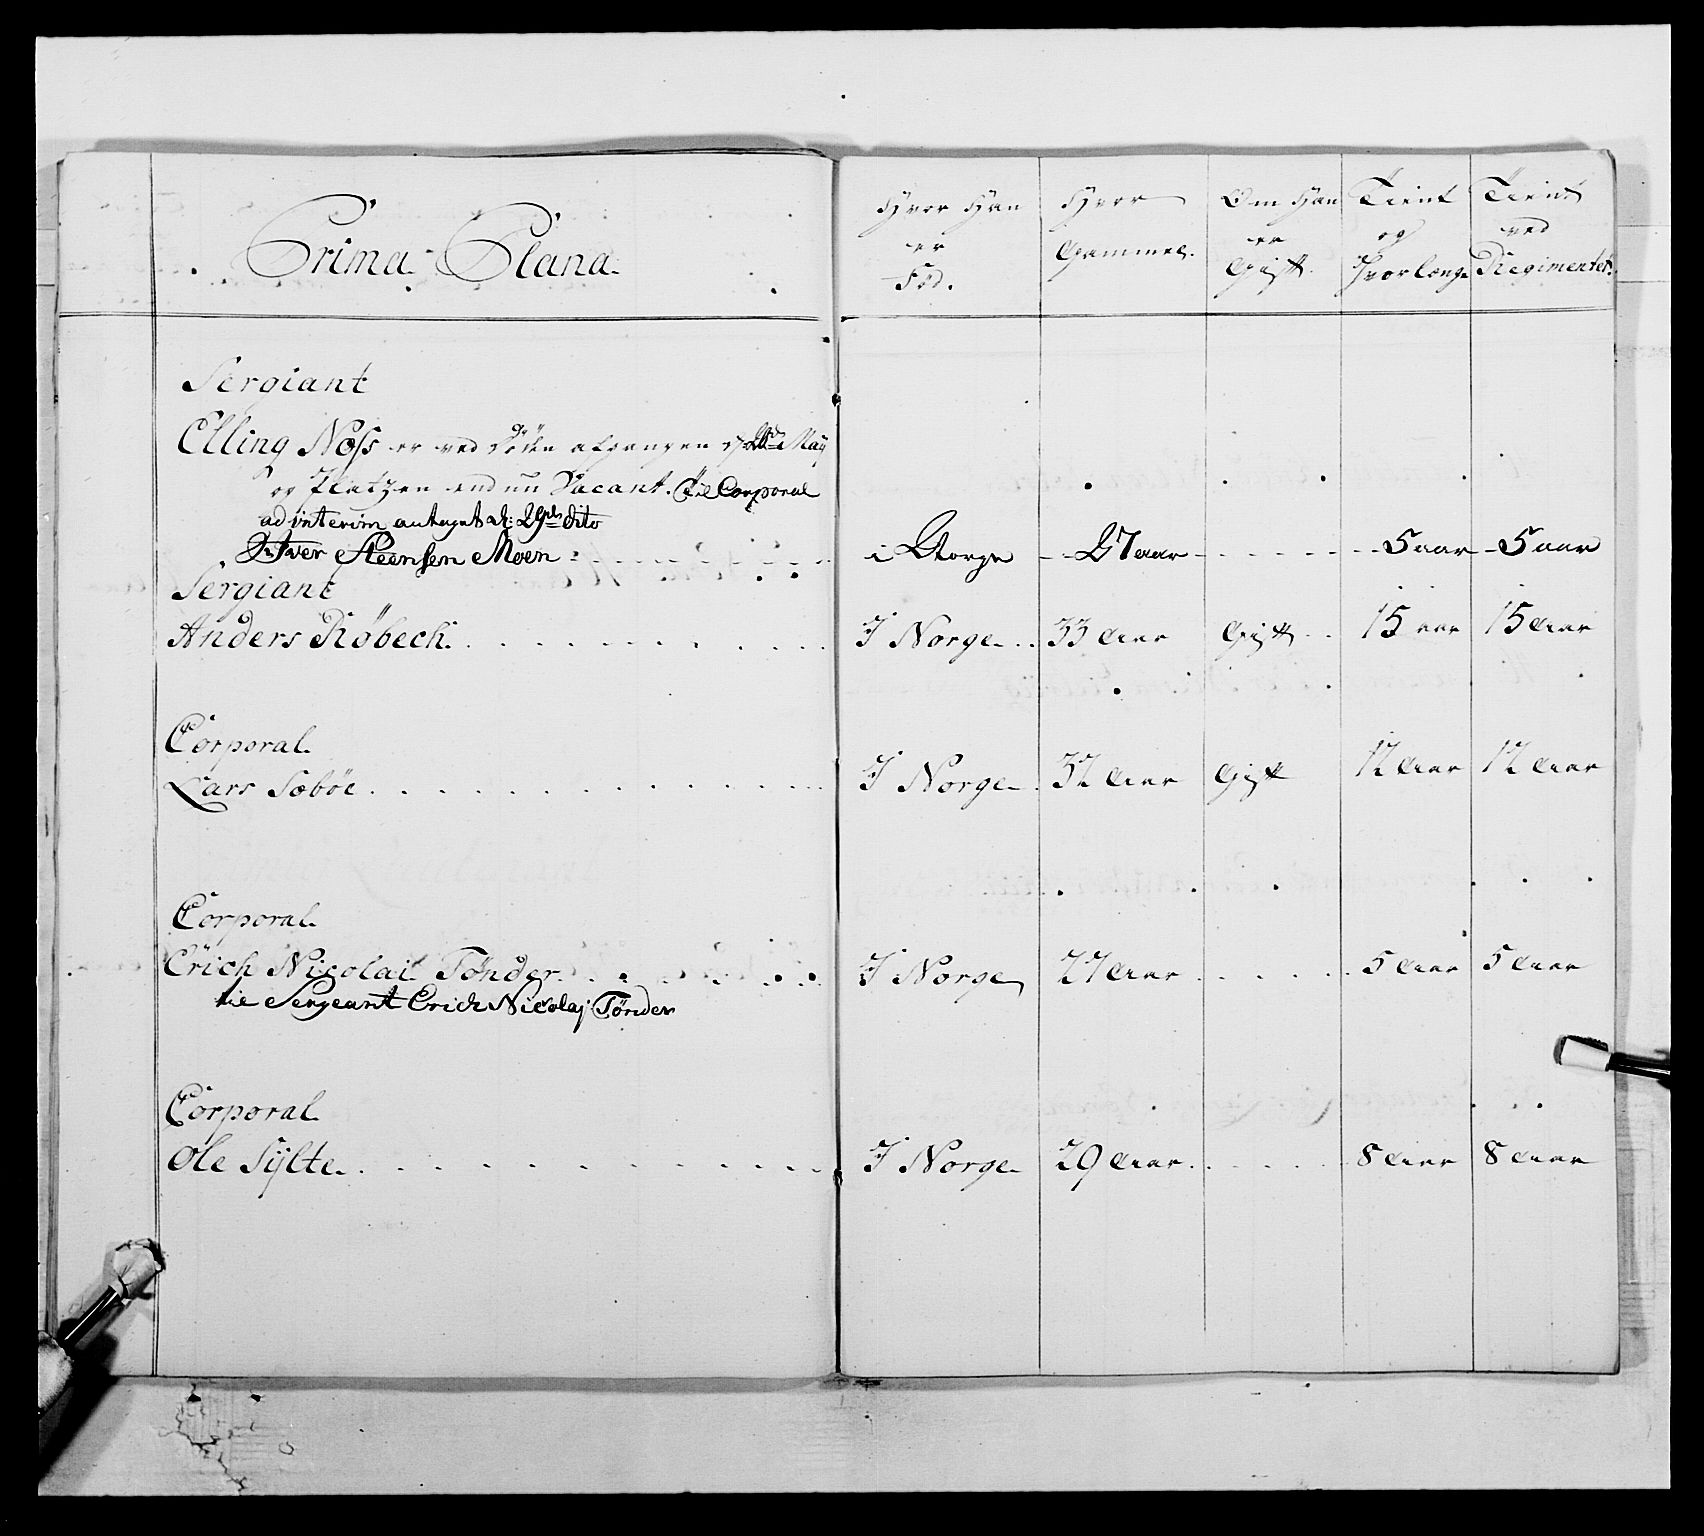 Prima Plana.
Hvor Han er Fød.
Hvor Gammel.
Om Han er Gift.
Tient og Hvorlænge
Tient ved Regimentet.
Sergiant
Elling Noss er ved Døden afgangen May
og Platzen end nu Vacant. til Corporal
ad interim antaget d: 29de dito
Iver Steensen Moen i Norge 27 aar 5 aar 5 aar
Sergiant
Anders Røbech. I Norge 33 Aar Gift 15 aar 15 Aar
Corporal.
Lars Sæbøe I Norge 32 Aar Gift 12 Aar 12 Aar
Corporal.
Erich Nicolai Tønder I Norge 27 Aar 5 Aar 5 Aar
til Sergeant Erich Nicolaj Tønder
Corporal
Ole Sylte I Norge 29 Aar 8 Aar 8 Aar